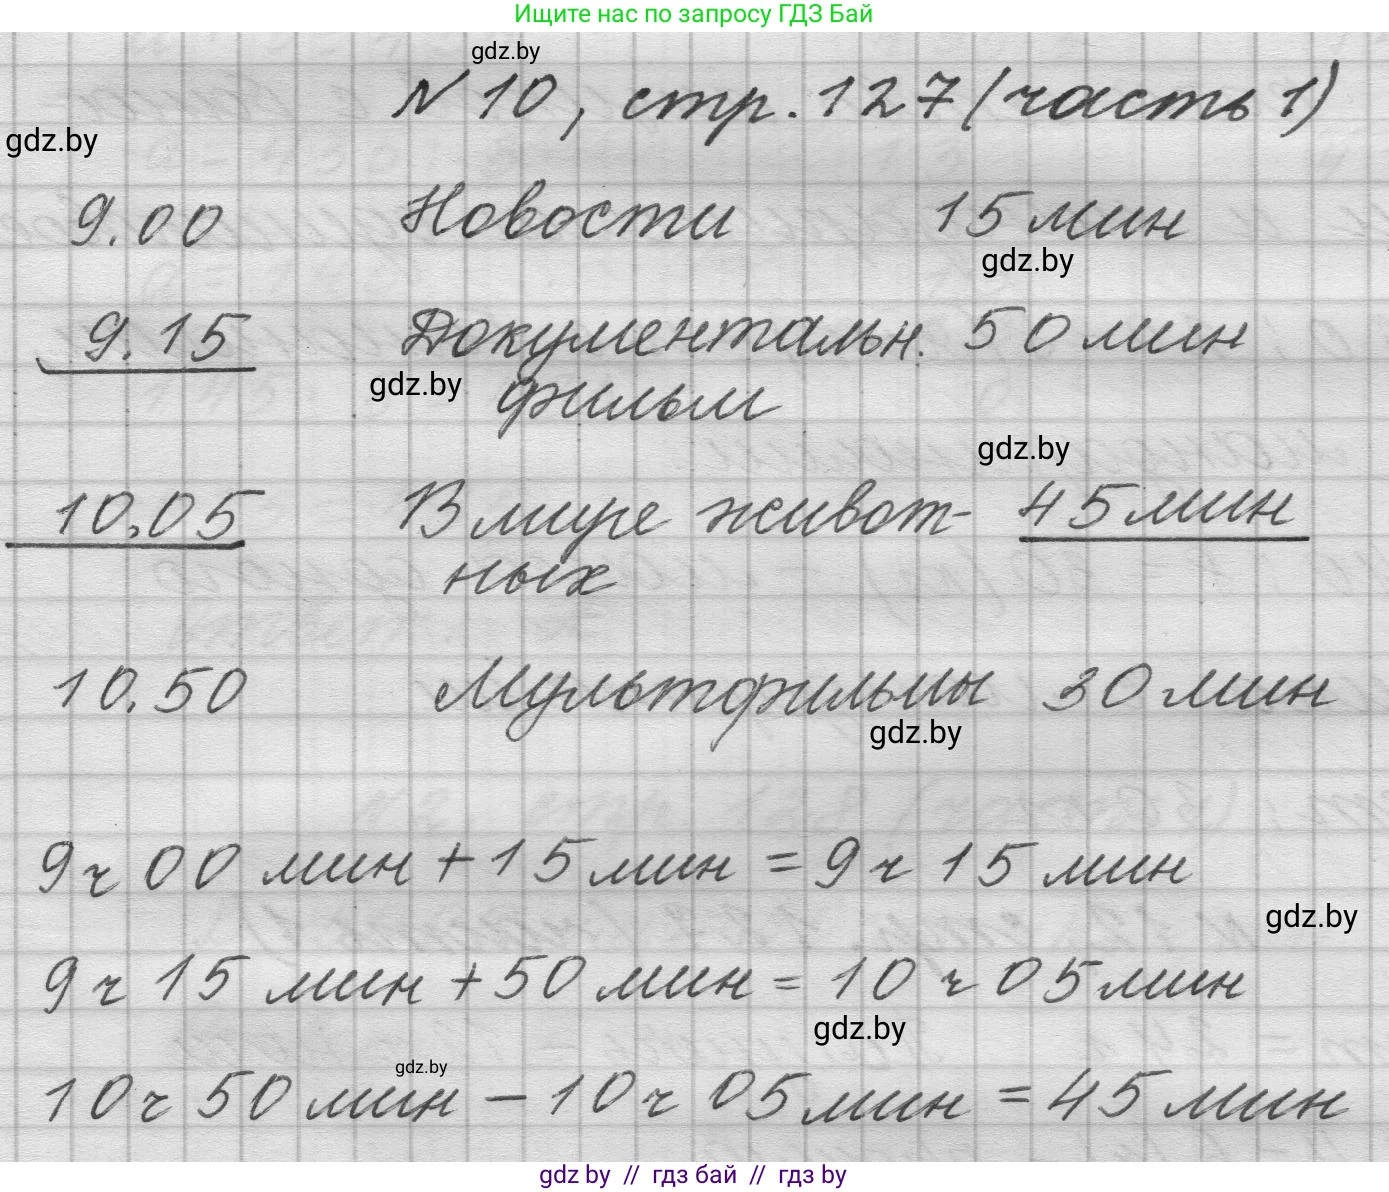 Ищите нас по запросу ГДЗ Бай
gdz.by
№ 10, стр. 127 (часть 1)
gdz.by
9.00 Новости 15 мин
gdz.by
9.15 Документальн. 50 мин
gdz.by фильм
gdz.by
10.05 В мире живот- 45 мин
ных
10.50 Мультфильмы 30 мин
gdz.by
9 ч 00 мин + 15 мин = 9 ч 15 мин
gdz.by
9 ч 15 мин + 50 мин = 10 ч 05 мин
gdz.by
gdz.by
10 ч 50 мин - 10 ч 05 мин = 45 мин
gdz by // гдз бай // гдз by